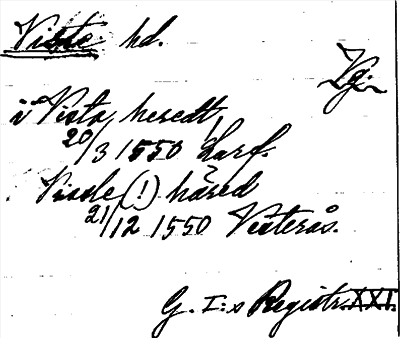 Vista hd.
Vg.
i Vista heredt
20/3 1550 Larf.
Visdle (!) häred
21/12 1550 Västerås.
G. I:s Registr. XXI.